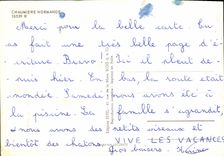 CHAUMIERE NORMANDE
Merci pour la belle carte tu
as fait une très belle page d'é-
criture Bravo! Ici il pleut de-
puis hier. En bas, la route était
inondée. Samedi nous avons été à
la piscine. La famille s'agrandit,
nous avons des petits oiseaux et
bientôt des chatons. VIVE LES VACANCES
Gros baisers.